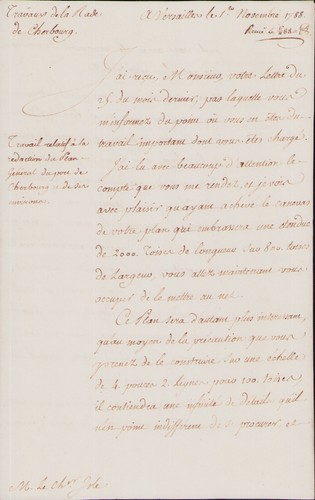 Travaux de la Rade
de Cherbourg.
A Versailles le 1er Novembre 1788.
Travail relatif à la
rédaction du Plan
général du port de
Cherbourg et de ses
environs.
J'ai reçu, Monsieur, votre Lettre du
25 du mois dernier, par laquelle vous
m'informez du point où vous en êtes du
travail important dont vous êtes chargé.
J'ai lu avec beaucoup d'attention le
compte que vous me rendez, et je vois
avec plaisir qu'ayant achevé le canevas
de votre plan qui embrassera une étendue
de 2000 Toises de longueur sur 800 toises
de Largeur, vous allez maintenant vous
occuper de la mettre au net.
Ce Plan sera d'autant plus intéressant,
qu'au moyen de la précaution que vous
prenez de le construire sur une échelle
de 4 pouces 2 lignes pour 100 toises,
il contiendra une infinité de détails qu'il
n'est point indifférent de se procurer, et
M. le Ch.er